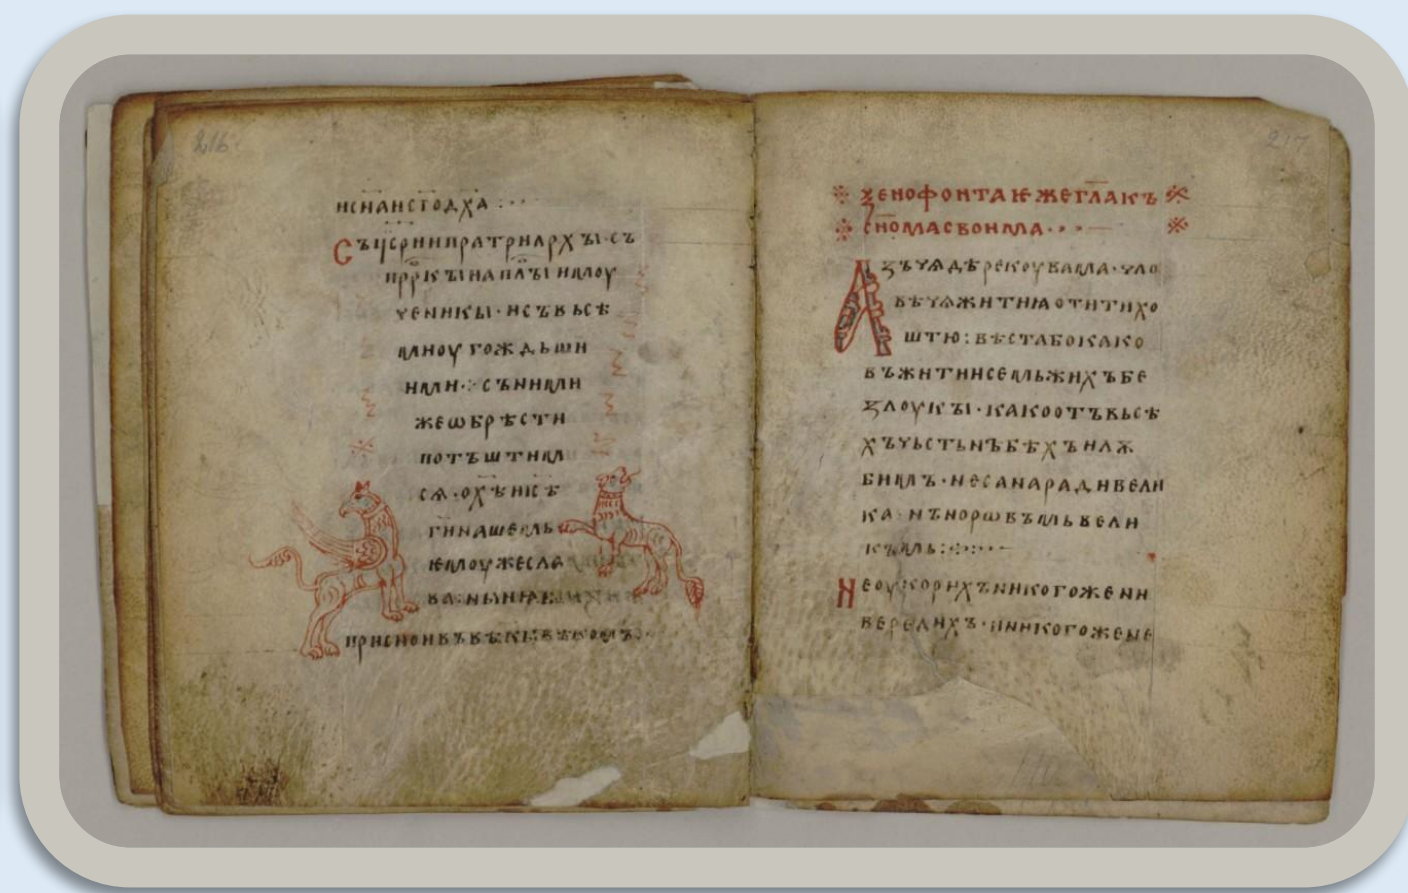 216
и сн҃а и ст҃го дх҃а : · · ·
Съ цс҃рии и патриархꙑ · съ
прр҃кꙑ и ап҃лꙑ и мѫ
ченикꙑ · и съ вьсѣ
ми оугождьши
ими · : съ ними
же ѡбрѣсти
потъштим
сѧ · о х҃ѣ ис҃ѣ
г҃и нашемь
ѥмоуже сла
ва · нꙑнѣ
присно и въ вѣкꙑ вѣкомъ :·
217
ѯенофонта ѥже гл҃а къ
сн҃ома своима · · · —
Азъ чѧдѣ рекоу вама · чло
вѣчѧ жития отити хо
штю : вѣста бо како
въ житии семь жихъ бе
з лоукꙑ · како отъ вьсѣ
хъ чьстьнъ бѣхъ и лю
бимъ · не сана ради вели
ка · нъ норѡвъмь вели
къмь :·:· · · —
Не оукорихъ никогоже ни
вередихъ · ни никогоже не